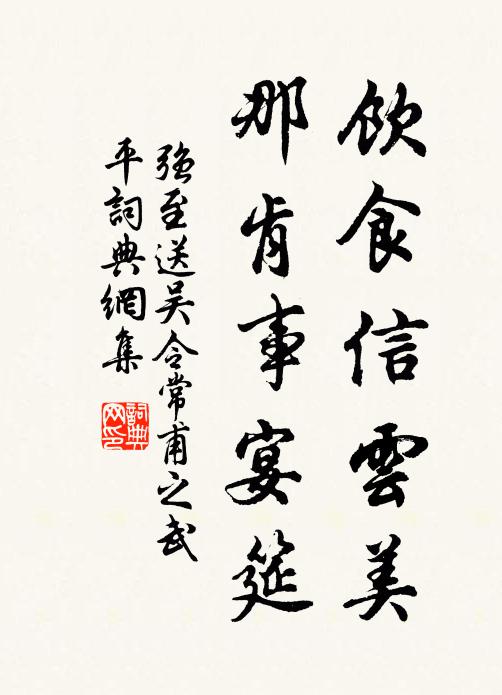 飲食信雲美
那肯事宴筵
強至送吳令常甫之武
平詞典網集
詞典
网印